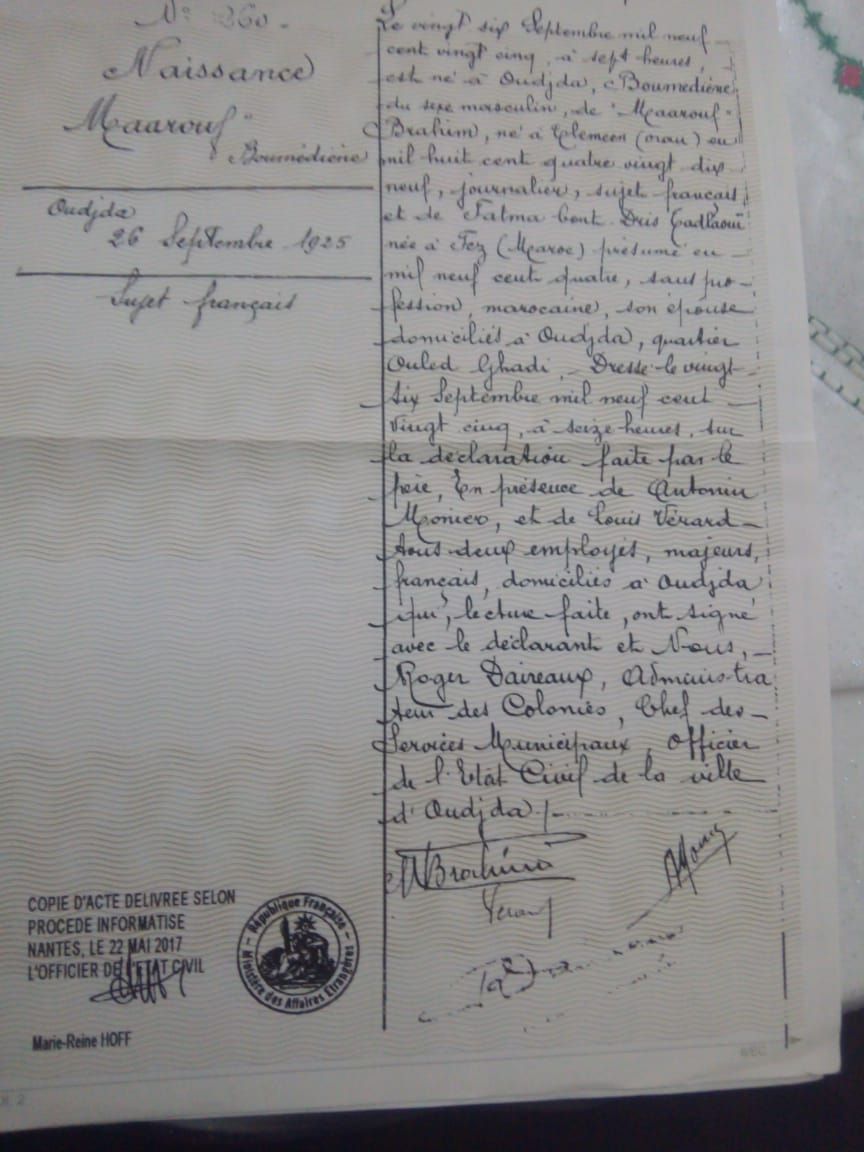 N° 260.
Naissance
"Maarouf"
Boumédiène
Oudjda
26 Septembre 1925
Sujet français
Le vingt six Septembre mil neuf
cent vingt cinq, à sept heures,
est né à Oudjda, Boumediène
du sexe masculin, de "Maarouf"
Brahim, né à Tlemcen (Oran) en
mil huit cent quatre vingt dix
neuf, journalier, sujet français,
et de Fatma bent Dris Tadlaoui
née à Fez (Maroc) présumé en
mil neuf cent quatre, sans pro-
fession, marocaine, son épouse
domiciliés à Oudjda, quartier
Ouled Ghadi. Dressé le vingt
six Septembre mil neuf cent
vingt cinq, à seize heures, sur
la déclaration faite par le
père, En présence de Antonin
Monier, et de Louis Vérard
tous deux employés, majeurs,
français, domiciliés à Oudjda
qui, lecture faite, ont signé
avec le déclarant et Nous,
Roger Daireaux, Administra
teur des Colonies, Chef des
Services Municipaux, Officier
de l'Etat Civil de la ville
d'Oudjda./.
MBrahim
Verard
COPIE D'ACTE DELIVREE SELON
PROCEDE INFORMATISE
NANTES, LE 22 MAI 2017
L'OFFICIER DE L'ETAT CIVIL
République Française
Ministère des Affaires Etrangères
Marie-Reine HOFF